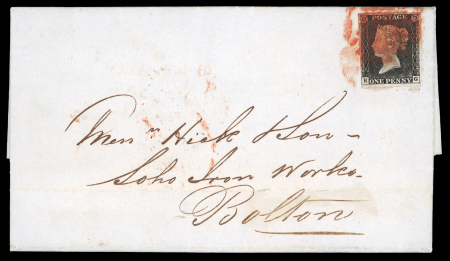 POSTAGE
E G
ONE PENNY
Messrs Hick & Son -
Soho Iron Works.
Bolton